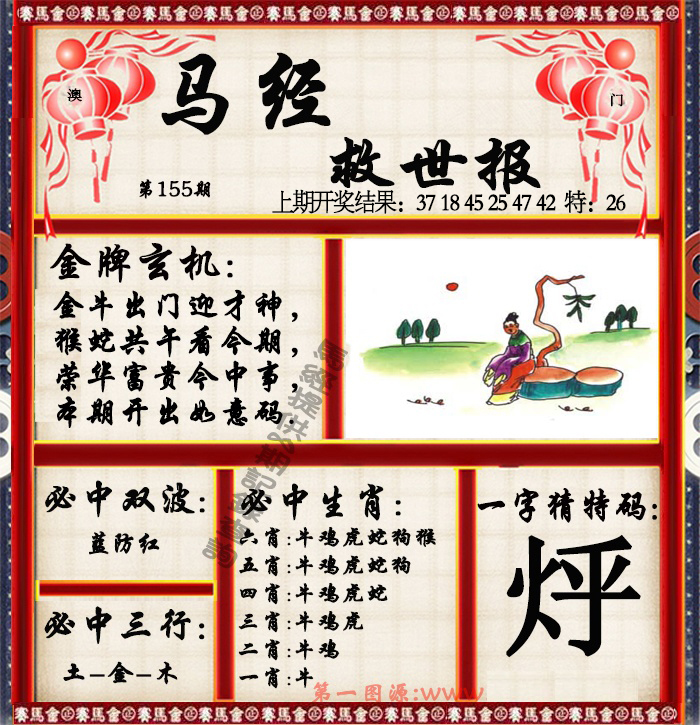 賽馬會金賽馬會金正賽馬會金賽馬會金正賽馬會金
澳
门
马经
救世报
第155期
上期开奖结果：37 18 45 25 47 42 特：26
金牌玄机：
金牛出门迎才神，
猴蛇共午看今期，
荣华富贵今中事，
本期开出如意码.
必中双波：
蓝防红
必中三行：
土-金-木
必中生肖：
六肖:牛鸡虎蛇狗猴
五肖:牛鸡虎蛇狗
四肖:牛鸡虎蛇
三肖:牛鸡虎
二肖:牛鸡
一肖:牛
一字猜特码：
烀
第一图源:www